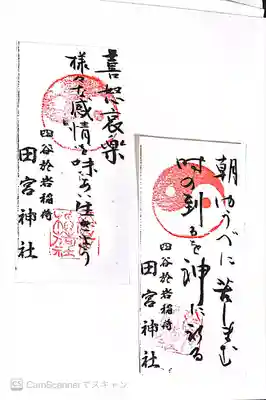 喜怒哀楽
様々な感情を味わい生きよう
四谷於岩稲荷
田宮神社
朝ゆうべに苦しむ
時の到るを神に祈る
四谷於岩稲荷
田宮神社
CamScannerでスキャン